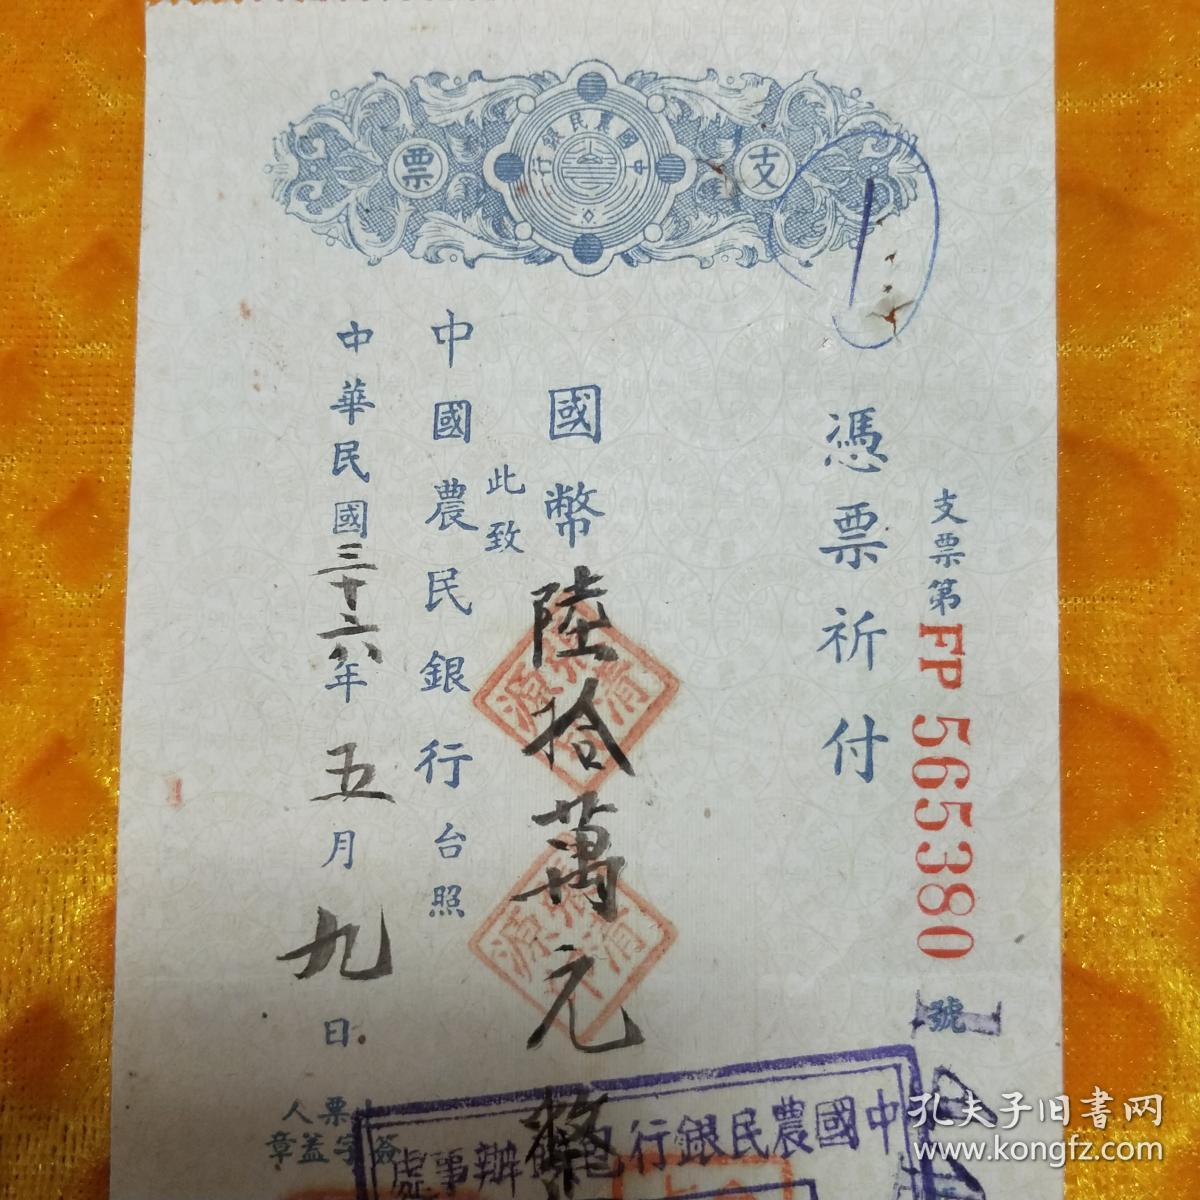 支票
中國農民銀行
支票第FP565380號
憑票祈付
國幣陸拾萬元整
此致
中國農民銀行台照
中華民國三十六年五月九日
票人
簽字蓋章
中國農民銀行
辦事處
孔夫子旧書网
www.kongfz.com